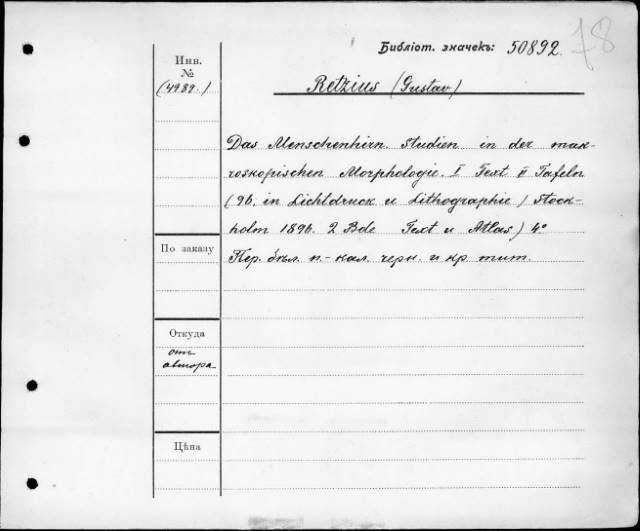 78
Библіот. значекъ: 50892.
Инв.
№
(4989.)
Retzius (Gustav)
Das Menschenhirn. Studien in der mak-
roskopischen Morphologie. I Text II Tafeln
(96. in Lichtdruck u Lithographie) Stock-
holm 1896. 2 Bde Text u Atlas) 4°
Пер. бѣл. п.-кал. черн. и кр. тит.
По заказу
Откуда
отъ
автора
Цѣна